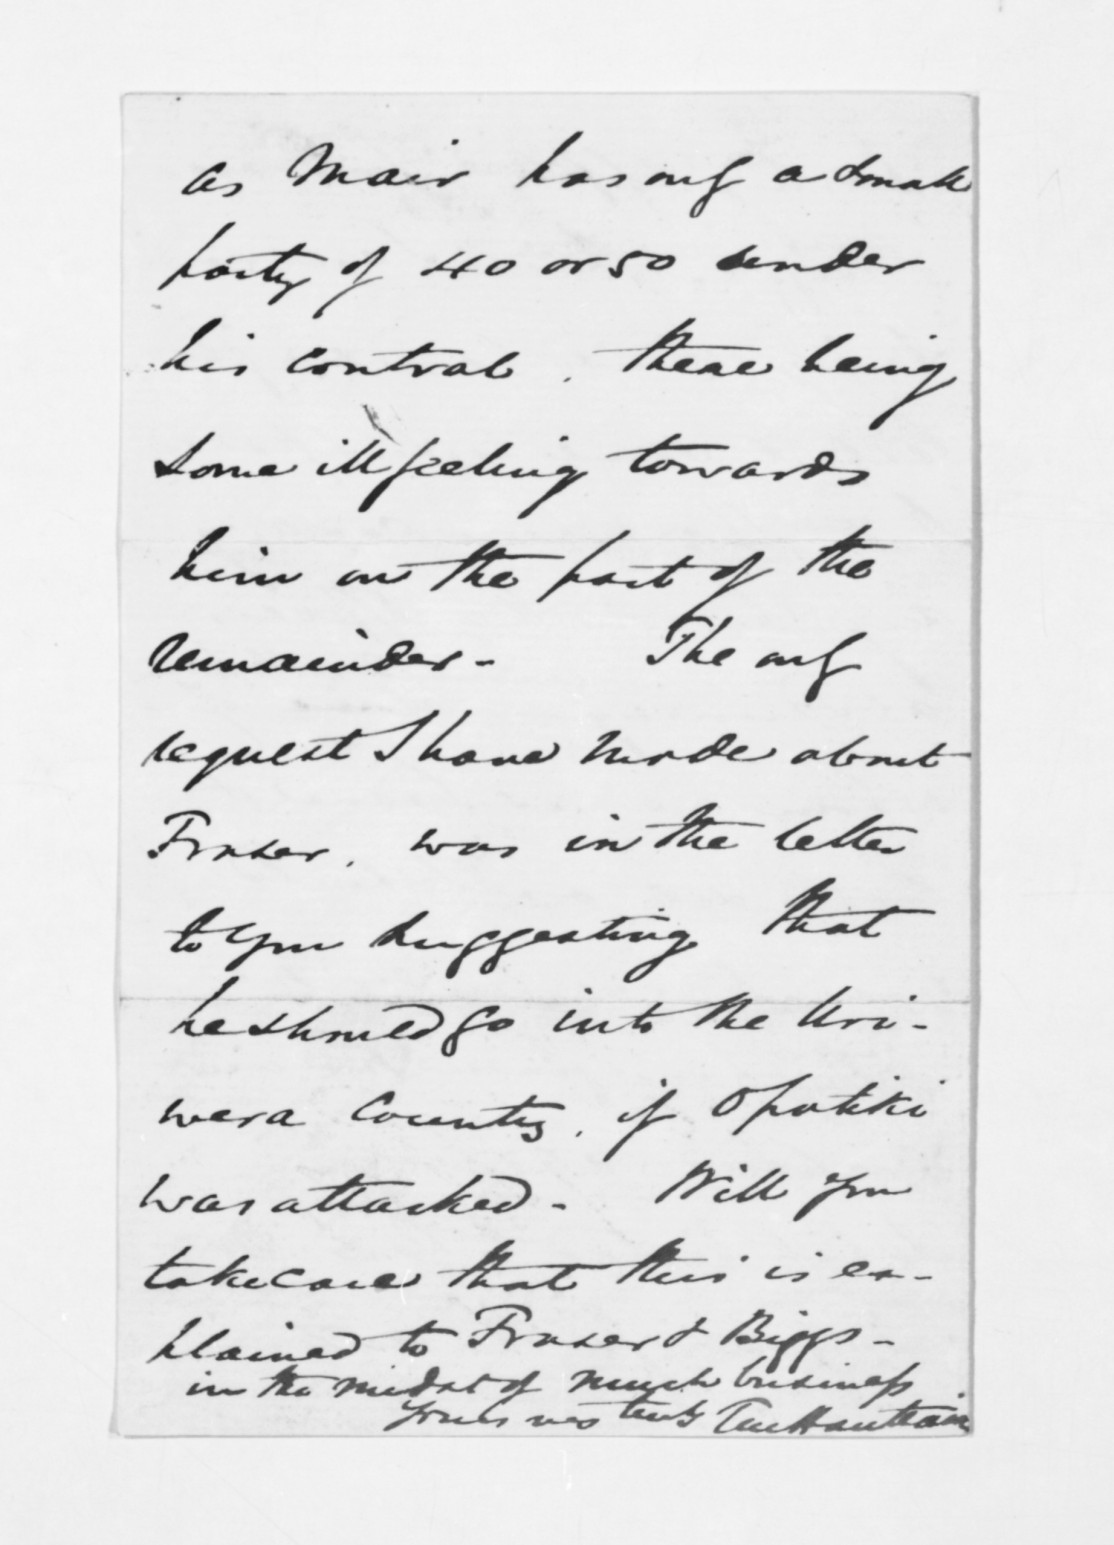 as Mair has only a small
party of 40 or 50 under
his control, there being
some ill feeling towards
him on the part of the
remainder - The only
request I have made about
Fraser, was in the letter
to you suggesting that
he should go into the Uri-
wera Country, if Opotiki
was attacked - Will you
take care that this is ex-
plained to Fraser & Biggs -
in the midst of much business
yours very truly TM Haultain